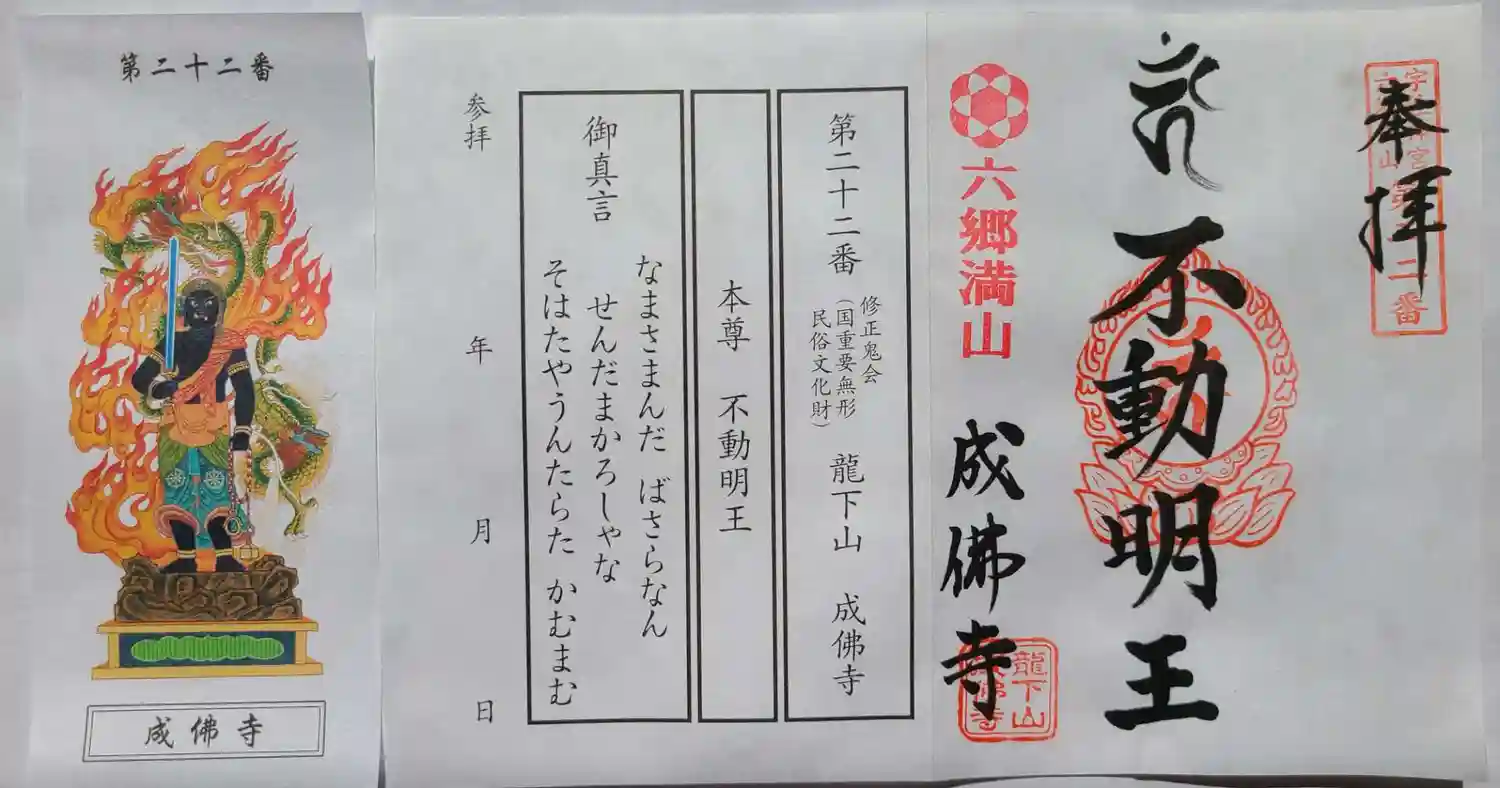 奉拝
不動明王
六郷満山
成佛寺
龍下山
成佛寺
第二十二番
修正鬼会
（国重要無形
民俗文化財）
龍下山 成佛寺
本尊 不動明王
御真言
なまさまんだ ばさらなん
せんだまかろしゃな
そはたやうんたらた かむまむ
参拝 年 月 日
第二十二番
成佛寺